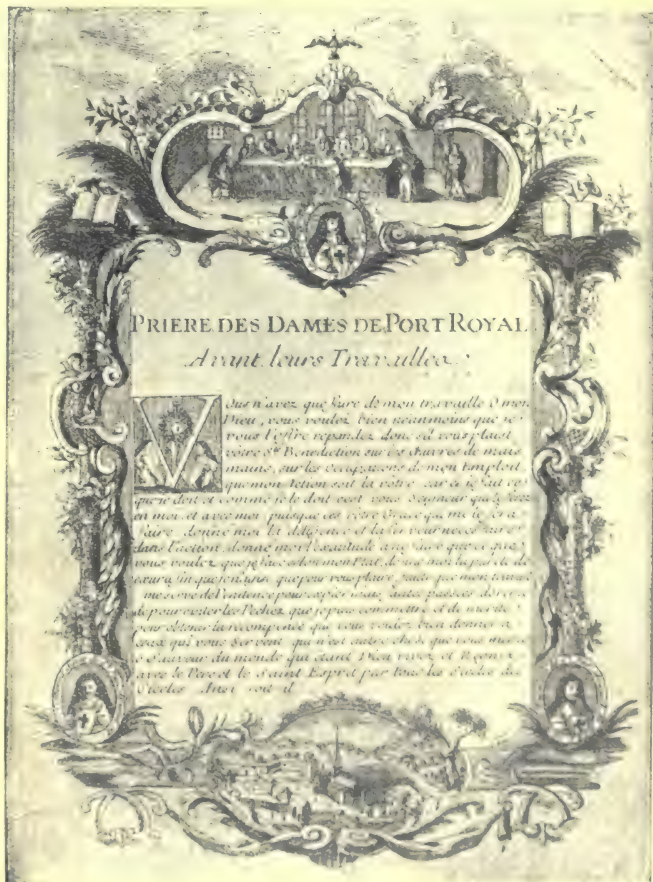 PRIERE DES DAMES DE PORT ROYAL
Avant leurs Travailles
Vous n'avez que faire de mon travaille O mon
Dieu, vous voulez bien néantmoins que je
vous l'offre répandez donc s'il vous plaist
vôtre Ste Benediction sur les Œuvres de mais
mains, sur les occupations de mon Emploit
que mon Action soit la vôtre car si je fait ce
que je doit et comme je le doit cest vous Seigneur qui le ferez
en moi et avec moi puisque ces vôtre Grace qui me le fera
faire donne moi la diligence et la ferveur necessaire
dans l'action donne moi l'exactitude a ne faire que ce que
vous voulez que je fasse selon mon Etat, donne moi la pureté de
cœur afin que je n'agisse que pour vous plaire, faite que mon travail
me serve de Penitence pour expier mais fautes passées
de pour eviter les Pechez que je puis commettre et de merite
pour obtenir la recompence que vous voulez bien donner a
ceux qui vous Servent qui n'est autre chose que vous
o Sauveur du monde qui étant Dieu vivez et Regnez
avec le Pere et le Saint Esprit par tous les Siecles des
Siecles Ainsi soit il